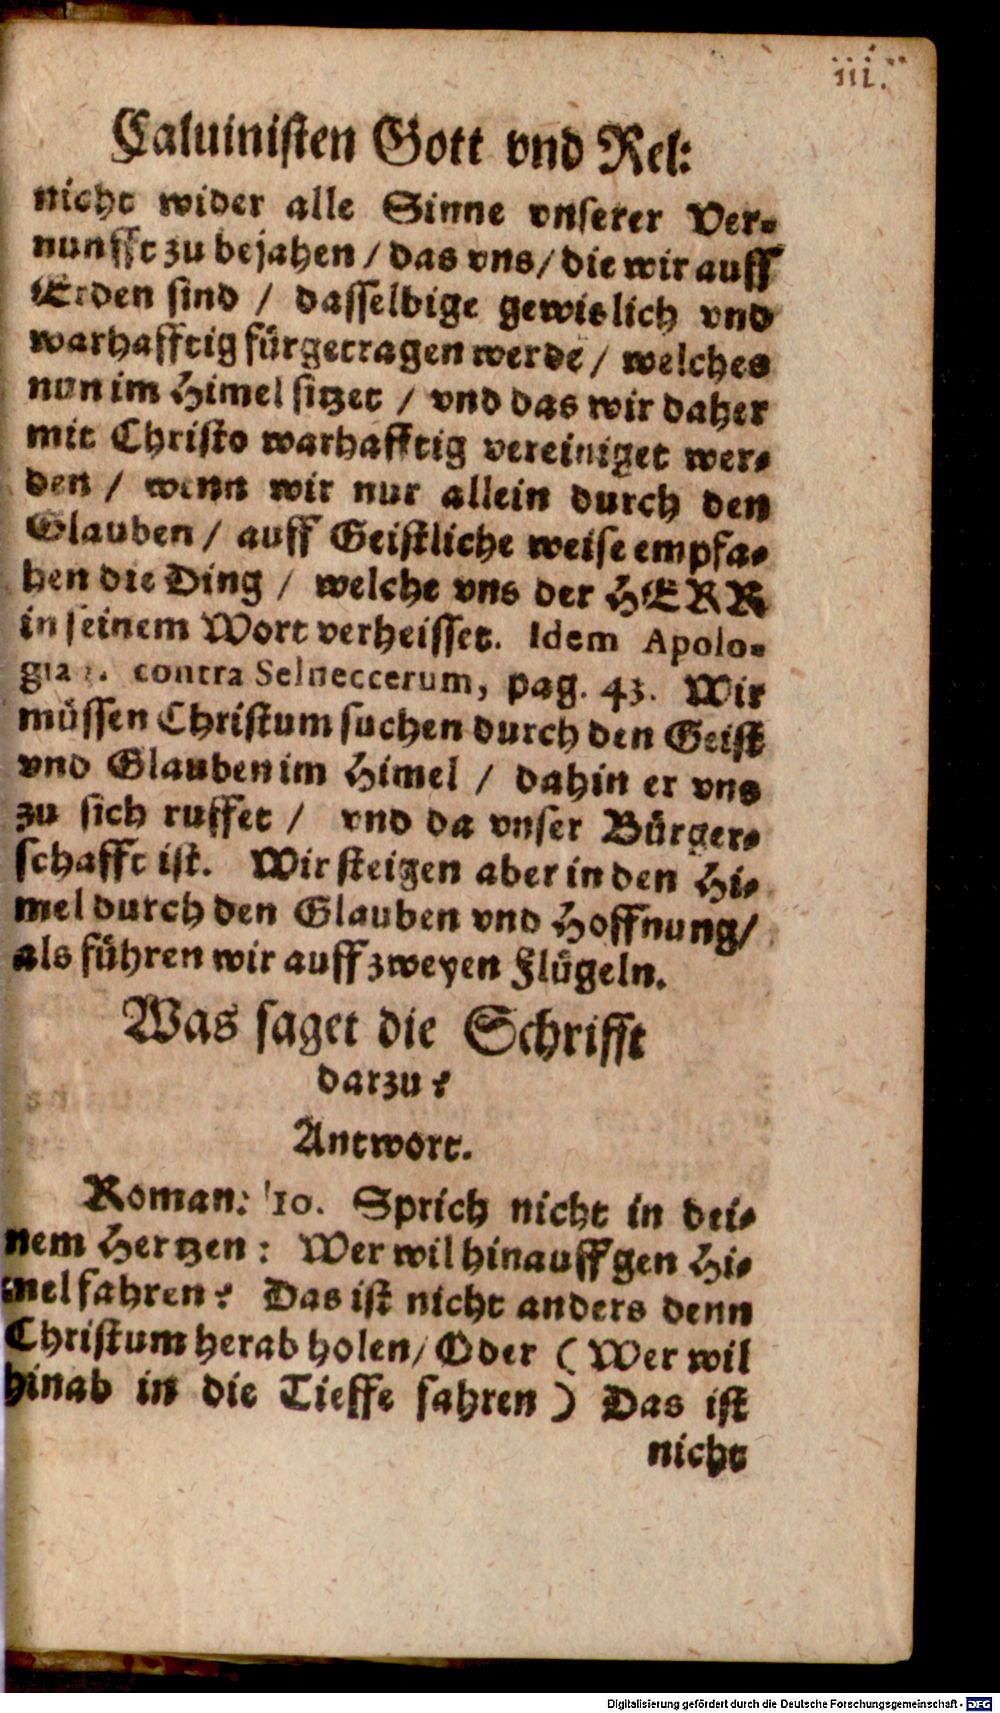 iii.
Caluinisten Gott vnd Rel:
nicht wider alle Sinne vnserer Ver-
nunfft zu bejahen / das vns / die wir auff
Erden sind / dasselbige gewislich vnd
warhafftig fürgetragen werde / welches
nun im Himel sitzet / vnd das wir daher
mit Christo warhafftig vereiniget wer-
den / wenn wir nur allein durch den
Glauben / auff Geistliche weise empfa-
hen die Ding / welche vns der HERR
in seinem Wort verheisset. Idem Apolo-
gia contra Selneccerum, pag. 43. Wir
müssen Christum suchen durch den Geist
vnd Glauben im Himel / dahin er vns
zu sich ruffet / vnd da vnser Bürger-
schafft ist. Wir steigen aber in den Hi-
mel durch den Glauben vnd Hoffnung /
als führen wir auff zweyen Flügeln.
Was saget die Schrifft
darzu?
Antwort.
Roman: 10. Sprich nicht in dei-
nem Hertzen: Wer wil hinauff gen Hi-
mel fahren? Das ist nicht anders denn
Christum herab holen / Oder (Wer wil
hinab in die Tieffe fahren) Das ist
nicht
Digitalisierung gefördert durch die Deutsche Forschungsgemeinschaft - DFG